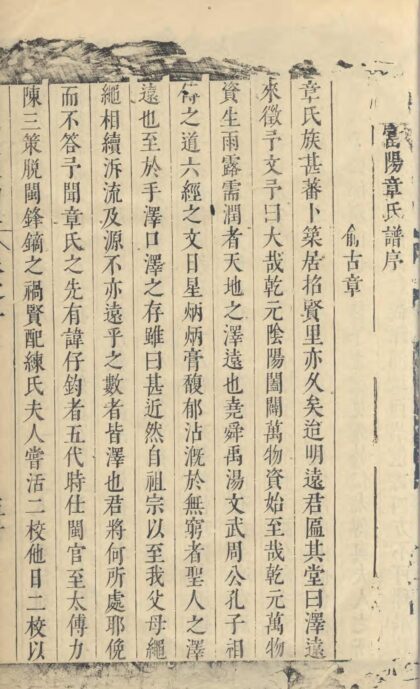 陽章氏譜序
古章
章氏族甚蕃卜築居招賢里亦久矣迨明遠君匾其堂曰澤遠
來徵予文予曰大哉乾元陰陽闔闢萬物資始至哉乾元萬物
資生雨露需潤者天地之澤遠也堯舜禹湯文武周公孔子相
之道六經之文日星炳炳膏馥郁沾漑於無窮者聖人之澤
遠也至於手澤口澤之存雖曰甚近然自祖宗以至我父母繩
繩相續泝流及源不亦遠乎之數者皆澤也君將何所處耶俛
而不答予聞章氏之先有諱仔鈞者五代時仕閩官至太傅力
陳三策脫閩鋒鏑之禍賢配練氏夫人嘗活二校他日二校以